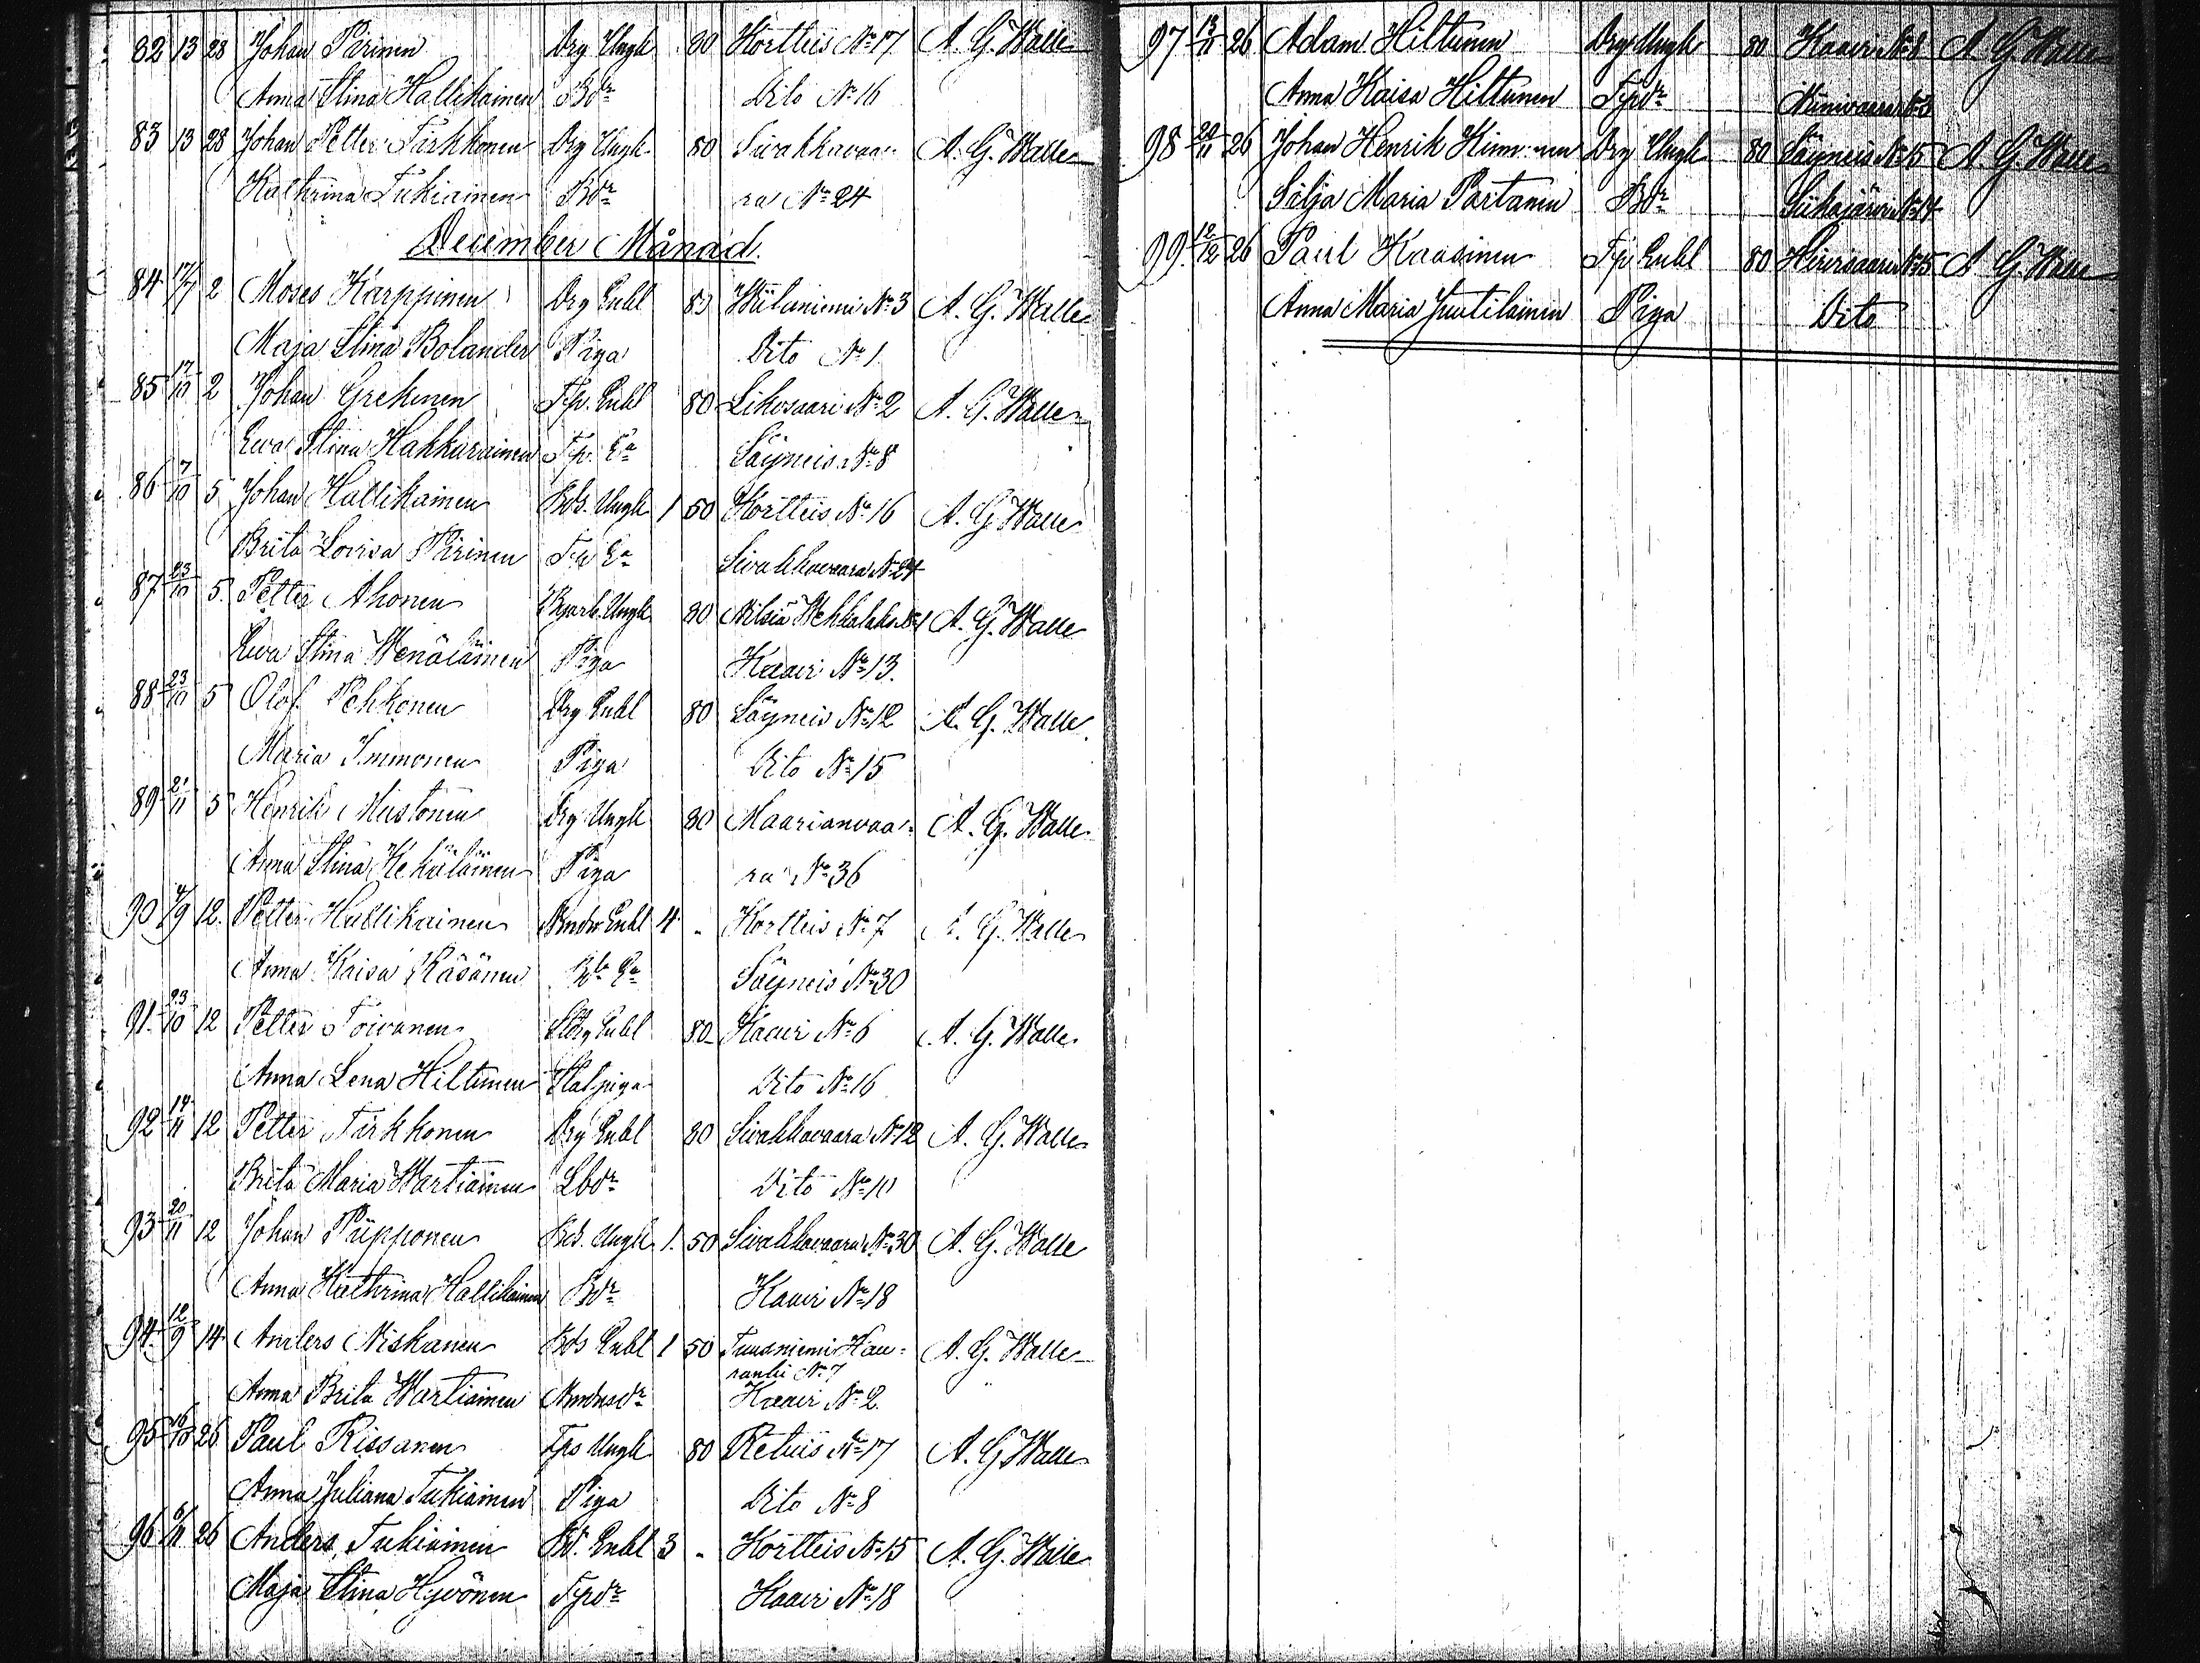 82 13 28 Johan Pirinen Drg Ungk 80 Kortteis No 17 A. G. Walle
Anna Stina Hallikainen Bdr Dito No 16
83 13 28 Johan Petter Tirkkonen Drg Ungk 80 Sivakkavaa- A. G. Walle
Kathrina Tukiainen Bdr ra No 24
December Månad.
84 17/7 2 Moses Karppinen Drg Enkl 80 Wiilaniemi No 3 A. G. Walle
Maja Stina Bolander Piga Dito No 1
85 17/10 2 Johan Grekinen Tp. Enkl 80 Likosaari No 2 A. G. Walle
Ewa Stina Hakkarainen Tp. Ea Säyneis No 8
86 7/10 5 Johan Hallikainen Bds. Ungk 1 50 Kortteis No 16 A. G. Walle
Brita Lovisa Pirinen Tp Ea Sivakkavaara No 24
87 23/10 5 Petter Ahonen Ungk 80 Nilsiä No 1 A. G. Walle
Ewa Stina Wenäläinen Piga Kaavi No 13.
88 23/10 5 Olof Pehkonen Drg Enkl 80 Säyneis No 12 A. G. Walle
Maria Immonen Piga Dito No 15
89 21/11 5 Henrik Mustonen Drg Ungk 80 Maarianvaa- A. G. Walle
Anna Stina Kekäläinen Piga ra No 36
90 4/9 12 Petter Hallikainen Enkl 4 - Kortteis No 7 A. G. Walle
Anna Kaisa Räsänen Ea Säyneis No 30
91 23/10 12 Petter Toivanen Enkl 80 Kaavi No 6 A. G. Walle
Anna Lena Hiltunen Dito No 16
92 14/11 12 Petter Tirkkonen Drg Enkl 80 Sivakkavaara No 12 A. G. Walle
Brita Maria Wartiainen Lbdr Dito No 10
93 20/11 12 Johan Piipponen Bds. Ungk 1. 50 Sivakkavaara No 30 A. G. Walle
Anna Kathrina Hallikainen Bdr Kaavi No 18
94 12/9 14 Anders Niskanen Bds Enkl 1 50 Tuusniemi Hau- A. G. Walle
ranki No 7
Anna Brita Wartiainen Kaavi No 2
95 16/10 26 Paul Rissanen Tps Ungk 80 Retuis No 17 A. G. Walle
Anna Juliana Tukiainen Piga Dito No 8
96 6/11 26 Anders Tukiainen Bd. Enkl 3 - Kortteis No 15 A. G. Walle
Maja Stina Hyvönen Tpdr Kaavi No 18
97 13/11 26 Adam Hiltunen Drg Ungk 80 Kaavi No 8 A. G. Walle
Anna Kaisa Hiltunen Tpdr Niinivaara No 3
98 20/11 26 Johan Henrik Drg Ungk 80 Säyneis No 15 A. G. Walle
Silja Maria Partanen Bdr Siikajärvi No 14
99 12/12 26 Paul Kaasinen Tp Enkl 80 Hirvisaari No 15 A. G. Walle
Anna Maria Juutilainen Piga Dito